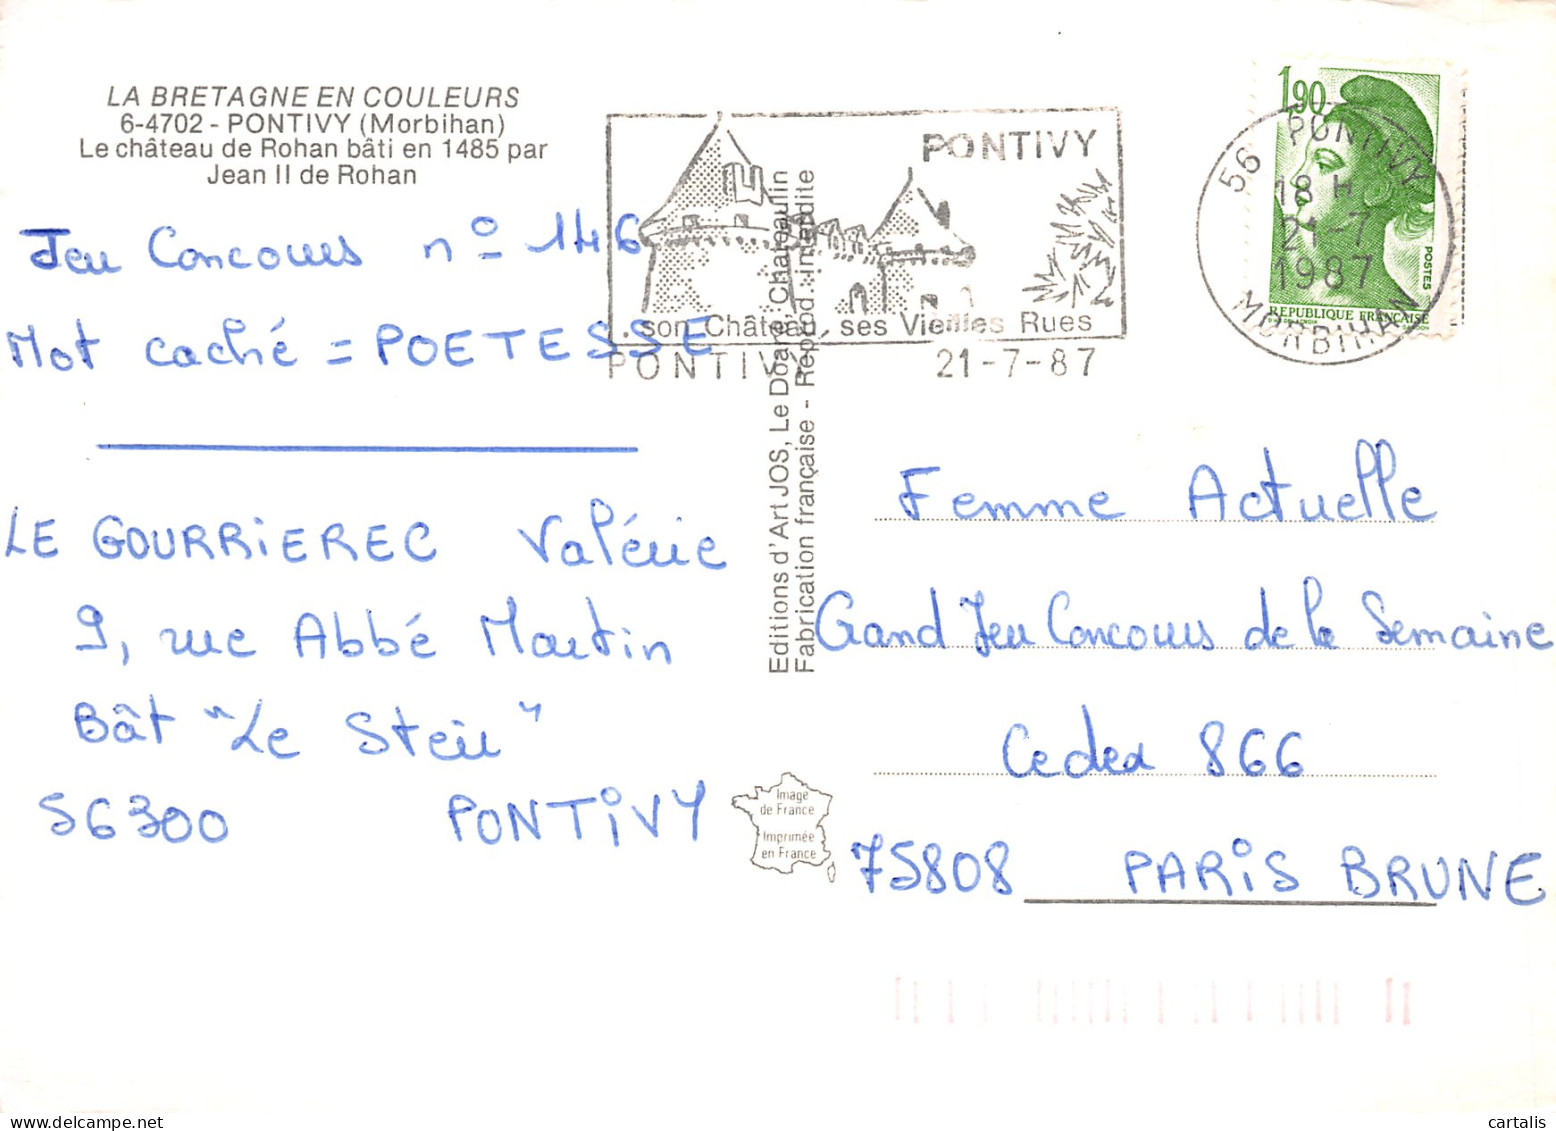 LA BRETAGNE EN COULEURS
6-4702 - PONTIVY (Morbihan)
Le château de Rohan bâti en 1485 par
Jean II de Rohan
Jeu Concours n° 146
Mot caché = POETESSE
LE GOURRIEREC Valérie
9, rue Abbé Martin
Bât "Le Steir"
56300 PONTIVY
PONTIVY
son Château, ses Vieilles Rues
PONTIVY 21-7-87
Editions d'Art JOS, Le Doaré, Chateaulin
Fabrication française - Reprod. interdite
Image
de France
Imprimée
en France
1,90
POSTES
REPUBLIQUE FRANÇAISE
56 PONTIVY
18 H
21-7
1987
MORBIHAN
Femme Actuelle
Grand Jeu Concours de la Semaine
Cedex 866
75808 PARIS BRUNE
cartalis